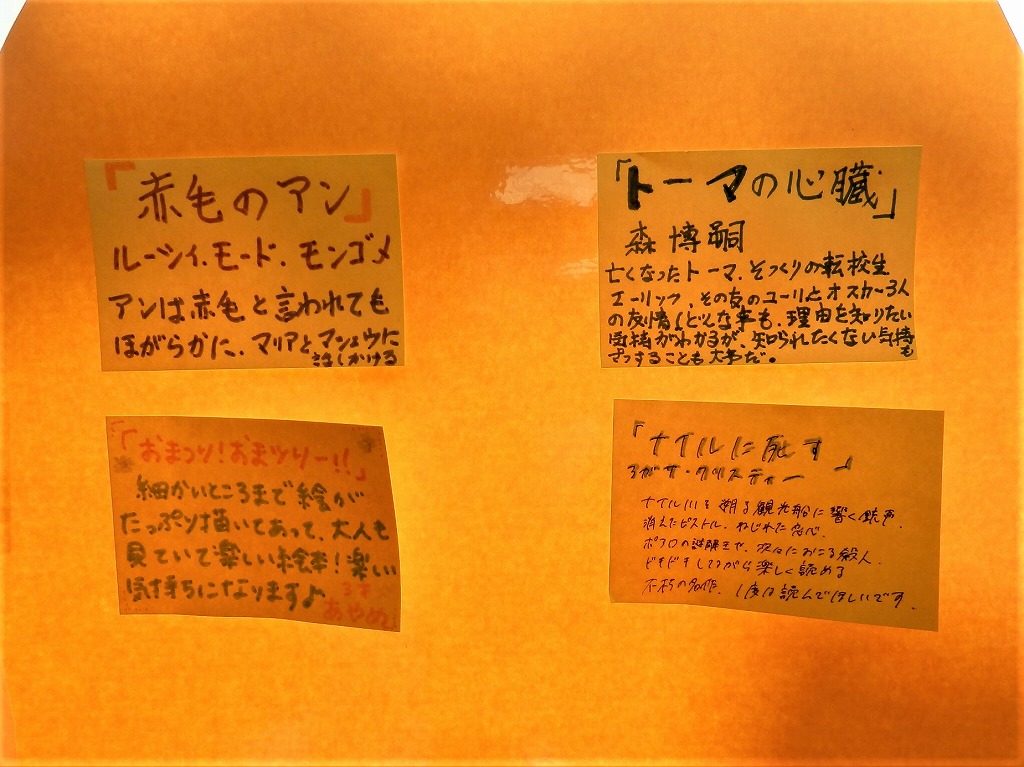 「赤毛のアン」
ルーシィ.モード.モンゴメ
アンは赤毛と言われても
ほがらかに、マリアとマシュウに
話しかける
「トーマの心臓」
森博嗣
亡くなったトーマ、そっくりの転校生
エーリッフ、その友のユーリとオスカー3人
の友情 どんな事も、理由を知りたい
気持がわかるが、知られたくない気持も
さっすることも大事だ。
「おまつり!おまつりー!!」
細かいところまで絵が
たっぷり描いてあって、大人も
見ていて楽しい絵本!楽しい
気持ちになります♪
あやめ
「ナイルに死す」
アガサ・クリスティー
ナイル川を遡る観光船に響く銃声.
消えたピストル.ねじれた恋心.
ポアロの謎解きや、次々におこる殺人.
どきどきしながら楽しく読める
不朽の名作.1度は読んでほしいです.